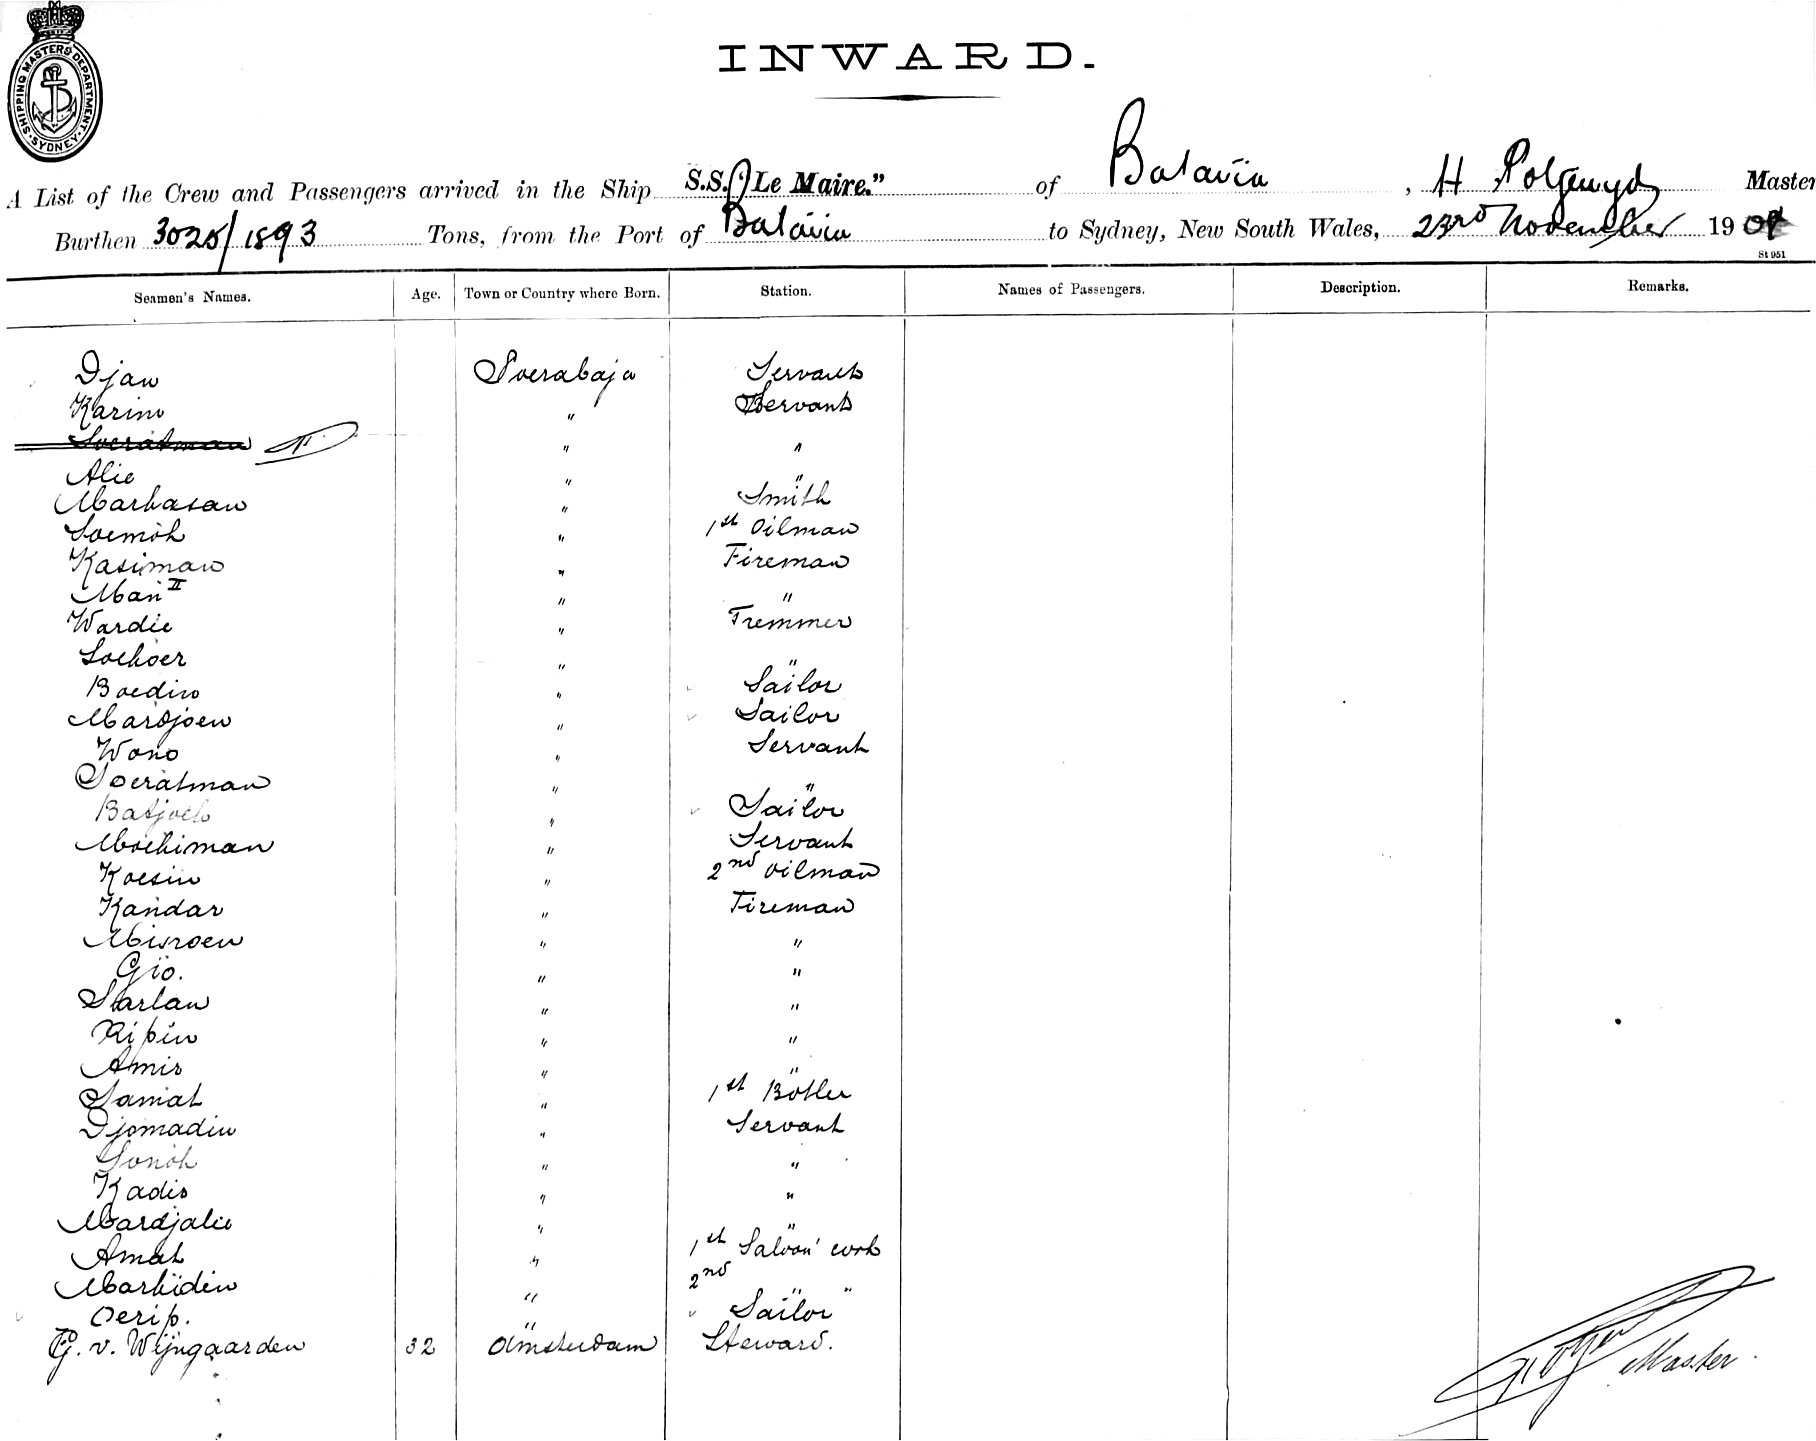 SHIPPING MASTERS DEPARTMENT. SYDNEY.
INWARD.
A List of the Crew and Passengers arrived in the Ship S.S. "Le Maire." of Batavia, H Master
Burthen 3025/1893 Tons, from the Port of Batavia to Sydney, New South Wales, 23rd November 1909
St 951
Seamen's Names. Age. Town or Country where Born. Station. Names of Passengers. Description. Remarks.
Djan Soerabaja Servant
Karim " Servant
Soeratman " "
Alie " "
Markasan " Smith
Soemoh " 1st Oilman
Kasiman " Fireman
Man II " "
Wardie " Tremmer
Soekoer " "
Boedin " Sailor
Mardjoen " Sailor
Wono " Servant
Soeratman " "
Batjoek " Sailor
Moekiman " Servant
Koesin " 2nd oilman
Kandar " Fireman
Misroen " "
Gio. " "
Sarlan " "
Ripin " "
Amir " "
Samat " 1st Botler
Djomadin " Servant
Sonoh " "
Kadis " "
Mardjalie " "
Amat " 1st Saloon cook
Markidin " 2nd " "
Oerip. " Sailor
G. v. Wijngaarden 32 Amsterdam Steward.
Master.